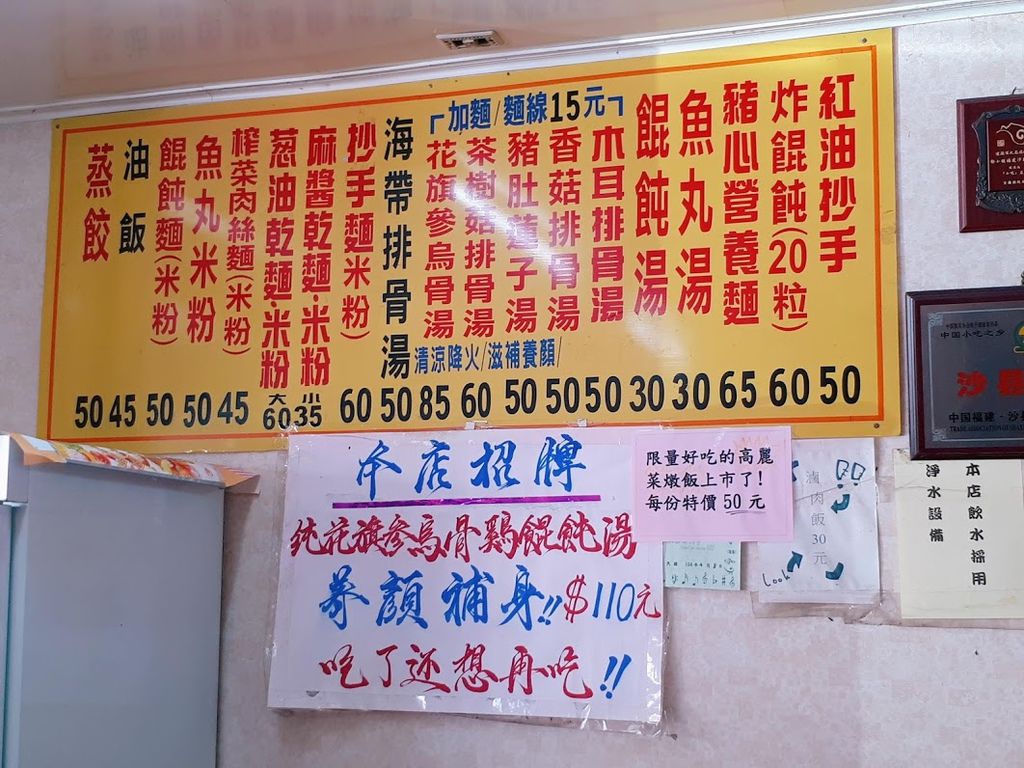 紅油抄手 50
炸餛飩(20粒) 60
豬心營養麵 65
魚丸湯 30
餛飩湯 30
「加麵/麵線15元」
木耳排骨湯 50
香菇排骨湯 50
豬肚蓮子湯 50
茶樹菇排骨湯 60
花旗參烏骨湯 85
清涼降火/滋補養顏/
海帶排骨湯 50
抄手麵(米粉) 60
麻醬乾麵·米粉 小35
葱油乾麵·米粉 大60
榨菜肉絲麵(米粉) 45
魚丸米粉 50
餛飩麵(米粉) 50
油飯 45
蒸餃 50
本店招牌
純花旗參烏骨鷄餛飩湯
養顏補身!! $110元
吃了还想再吃!!
限量好吃的高麗
菜燉飯上市了!
每份特價 50 元
滷肉飯30元
Look
本店飲水採用
淨水設備
中国小吃之乡
沙
中国福建·沙